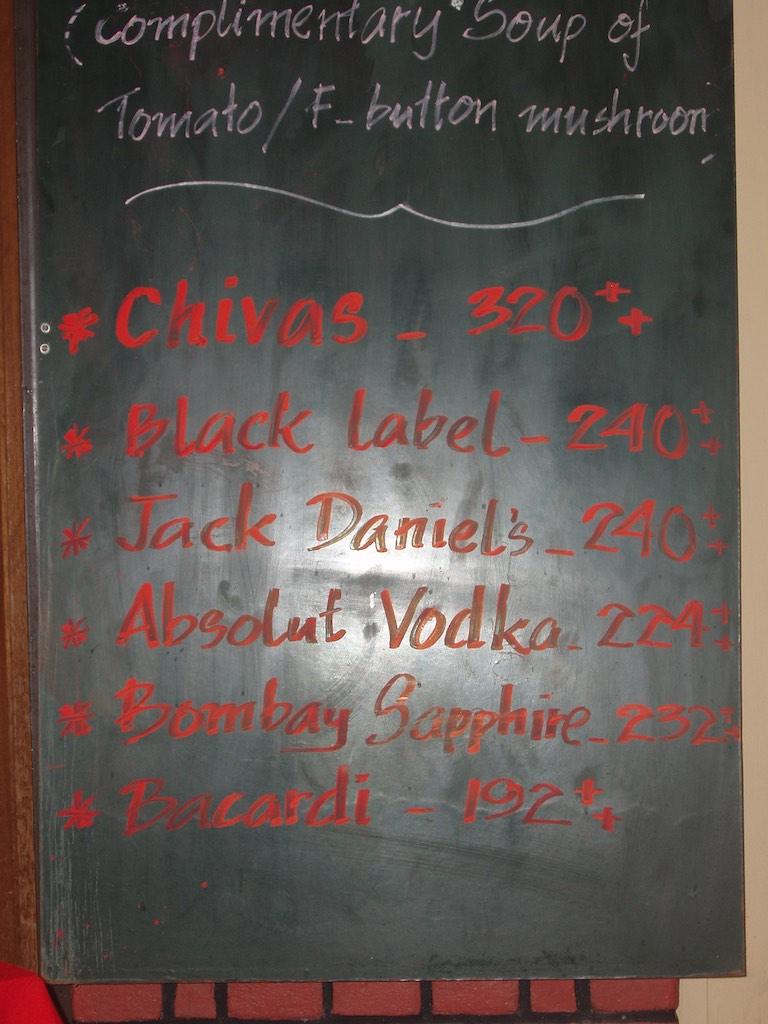 (Complimentary Soup of
Tomato/F-button mushroom
* Chivas - 320++
* Black label - 240++
* Jack Daniel's - 240++
* Absolut Vodka - 224++
* Bombay Sapphire - 232++
* Bacardi - 192++